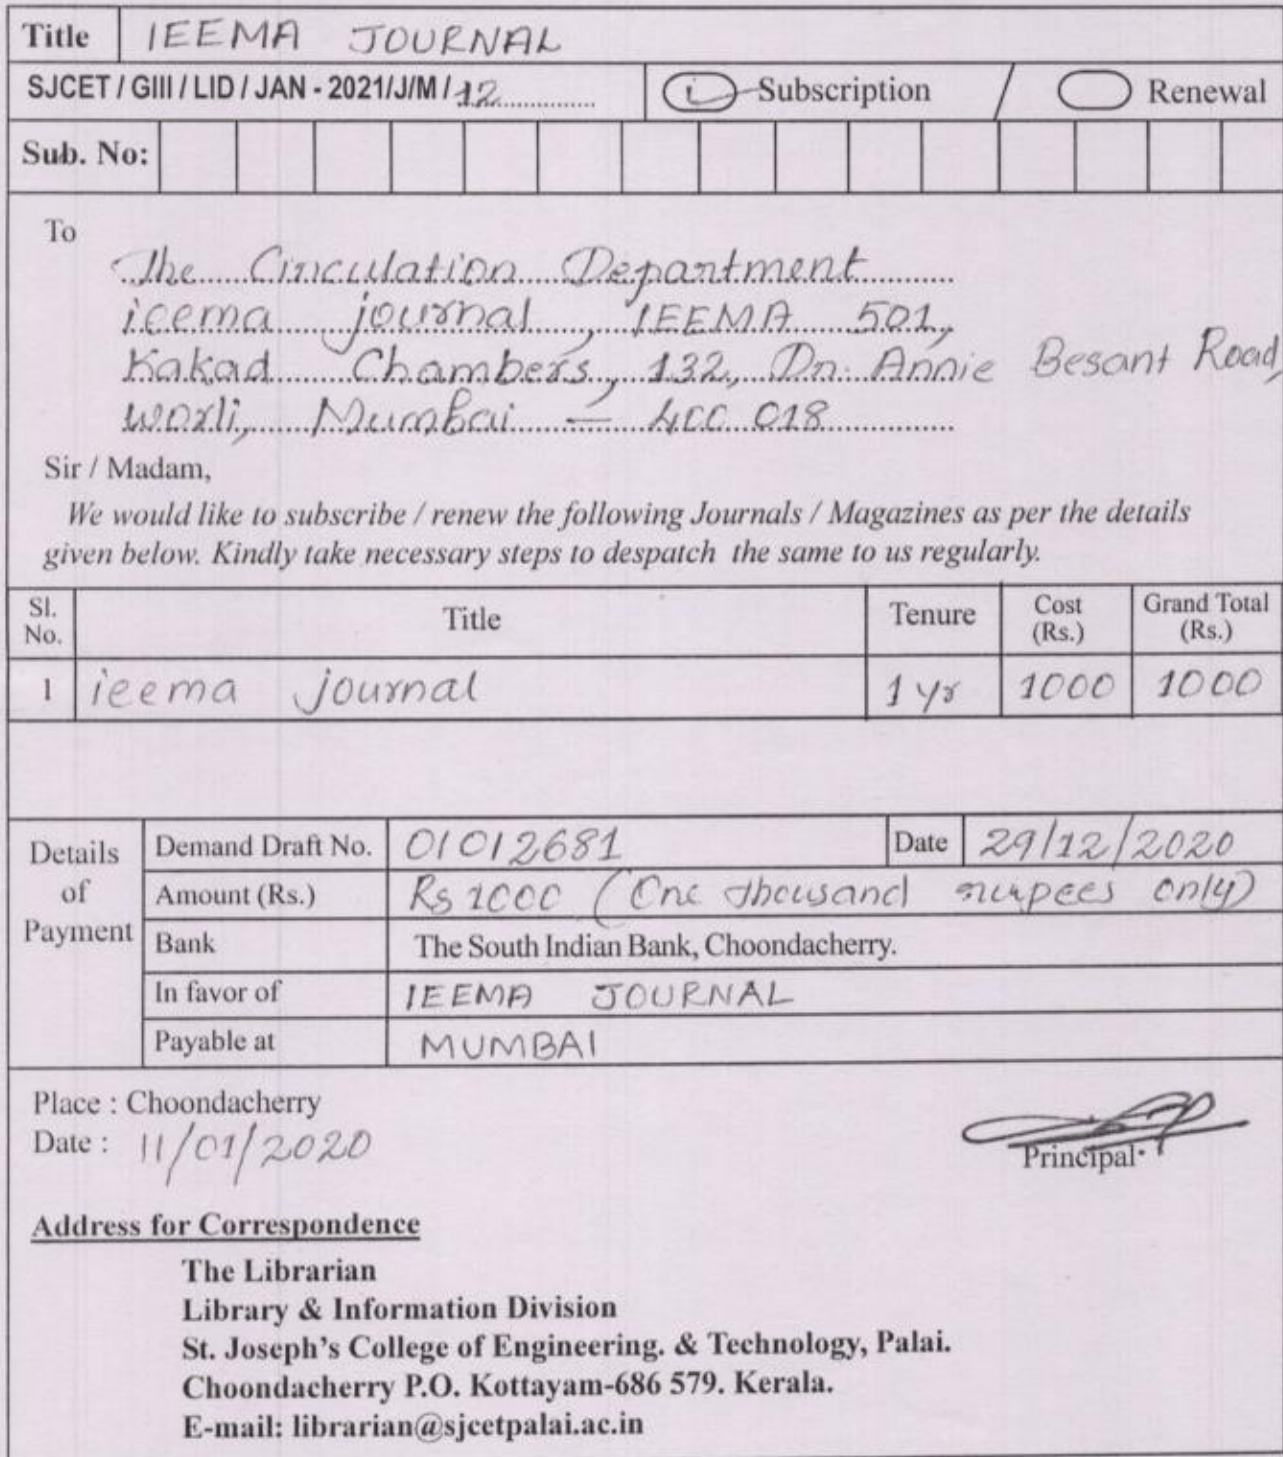 Title IEEMA JOURNAL
SJCET / GIII / LID / JAN - 2021/J/M / 12 Subscription / Renewal
Sub. No:
To
The Circulation Department
ieema journal, IEEMA 501,
Kakad Chambers, 132, Dr. Annie Besant Road,
worli, Mumbai - 400 018
Sir / Madam,
We would like to subscribe / renew the following Journals / Magazines as per the details
given below. Kindly take necessary steps to despatch the same to us regularly.
Sl. No. Title Tenure Cost (Rs.) Grand Total (Rs.)
1 ieema journal 1 yr 1000 1000
Details of Payment
Demand Draft No. 01012681 Date 29/12/2020
Amount (Rs.) Rs 1000 (One thousand rupees only)
Bank The South Indian Bank, Choondacherry.
In favor of IEEMA JOURNAL
Payable at MUMBAI
Place : Choondacherry
Date : 11/01/2020
Principal
Address for Correspondence
The Librarian
Library & Information Division
St. Joseph's College of Engineering. & Technology, Palai.
Choondacherry P.O. Kottayam-686 579. Kerala.
E-mail: librarian@sjcetpalai.ac.in